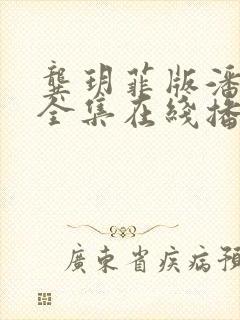 龔玥菲版潘
全集在綫播
廣東省疾病預